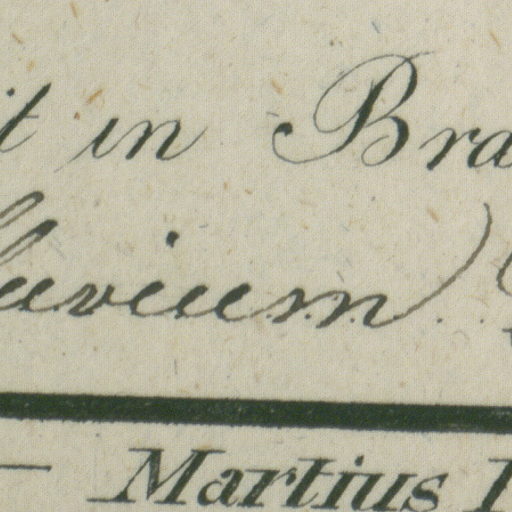 it in Bra
luvium)
— Martius I